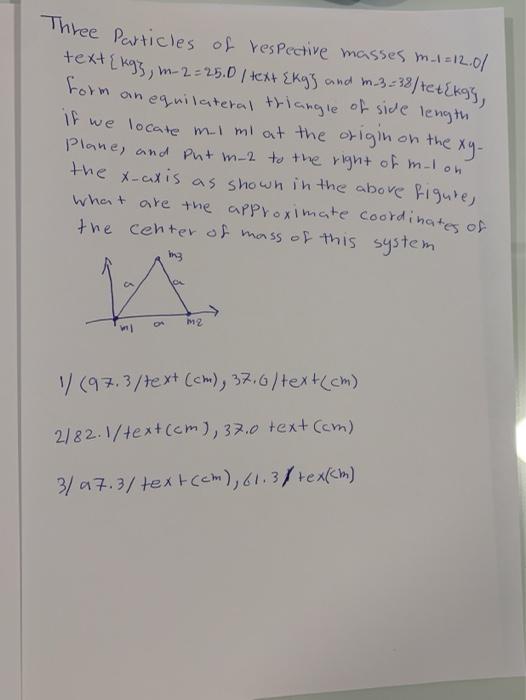 Three Particles of respective masses m-1=12.0/
text{kg}, m-2=25.0/text{kg} and m-3=38/tet{kg},
form an equilateral triangle of side length
if we locate m-1 m1 at the origin on the xy-
Plane, and put m-2 to the right of m-1 on
the x-axis as shown in the above figure,
what are the approximate coordinates of
the center of mass of this system
m3
a
a
m1
a
m2
1/ (97.3/text (cm), 37.6/text(cm)
2/82.1/text(cm), 37.0 text (cm)
3/ 97.3/ text(cm), 61.3/ tex(cm)